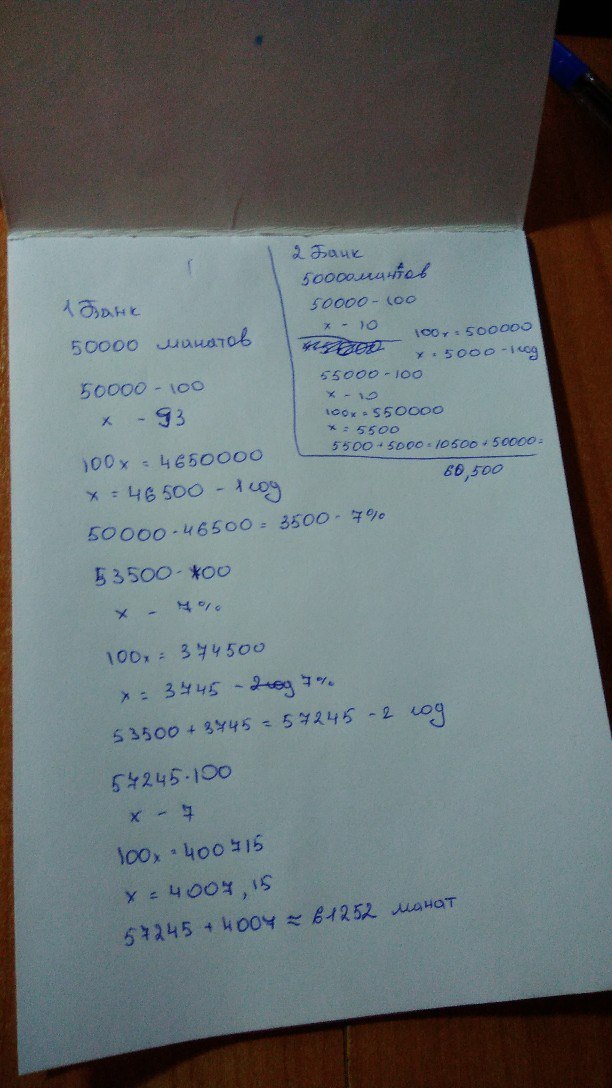 1 Банк
50000 манатов
50000 - 100
x - 93
100x = 4650000
x = 46500 - 1 год
50000 - 46500 = 3500 - 7%
53500 - 100
x - 7%
100x = 374500
x = 3745 - 2 год 7%
53500 + 3745 = 57245 - 2 год
57245 - 100
x - 7
100x = 400715
x = 4007,15
57245 + 4007 ≈ 61252 манат
2 Банк
50000 манатов
50000 - 100
x - 10
100x = 500000
x = 5000 - 1 год
55000 - 100
x - 10
100x = 550000
x = 5500
5500 + 5000 = 10500 + 50000 =
60,500